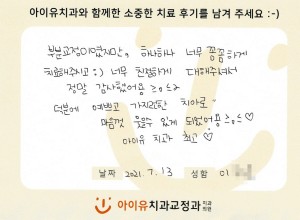 아이유치과와 함께한 소중한 치료 후기를 남겨 주세요 :-)
부분교정이였지만, 하나하나 너무 꼼꼼하게
치료해주시고 :) 너무 친절하게 대해주셔서
정말 감사했어용 ㅎㅅㅎ
덕분에 예쁘고 가지런한 치아로~
마음껏 웃을수 있게 되었어용 ㅎㅅㅎ♡
아이유 치과 최고♡
날짜 2021. 7. 13 성함 이
아이유치과교정과치과의원